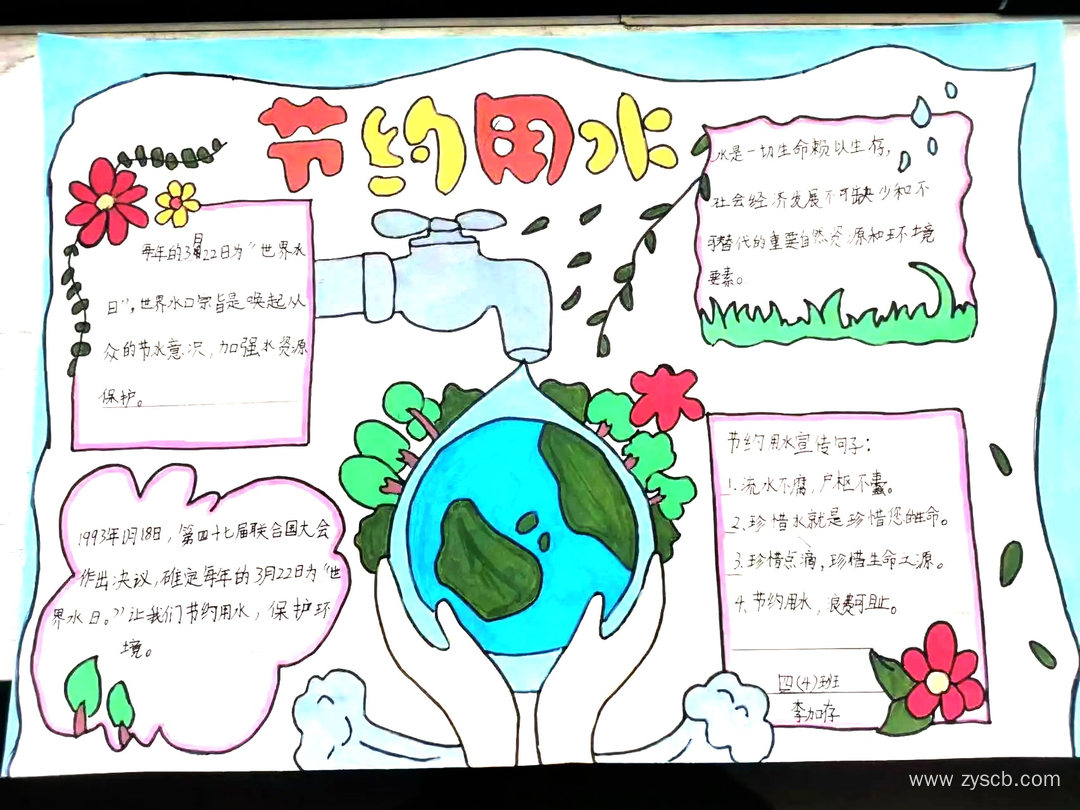 节约用水
每年的3月22日为“世界水
日”,世界水日宗旨是唤起公
众的节水意识,加强水资源
保护。
水是一切生命赖以生存,
社会经济发展不可缺少和不
可替代的重要自然资源和环境
要素。
1993年1月18日,第四十七届联合国大会
作出决议,确定每年的3月22日为“世
界水日。”让我们节约用水,保护环
境。
节约用水宣传句子:
1.流水不腐,户枢不蠹。
2.珍惜水就是珍惜您的生命。
3.珍惜点滴,珍惜生命之源。
4.节约用水,浪费可耻。
四(4)班
李加存
www.zyscb.com